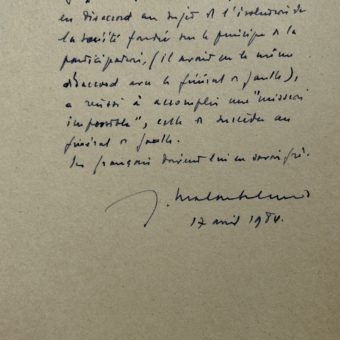 en désaccord au sujet de l'évolution de
la société fondée sur le principe de la
participation, (il avait eu le même
désaccord avec le général de Gaulle),
a réussi à accomplir une "mission
impossible", celle de succéder au
général de Gaulle.
Les français doivent lui en savoir gré.
17 avril 1984.